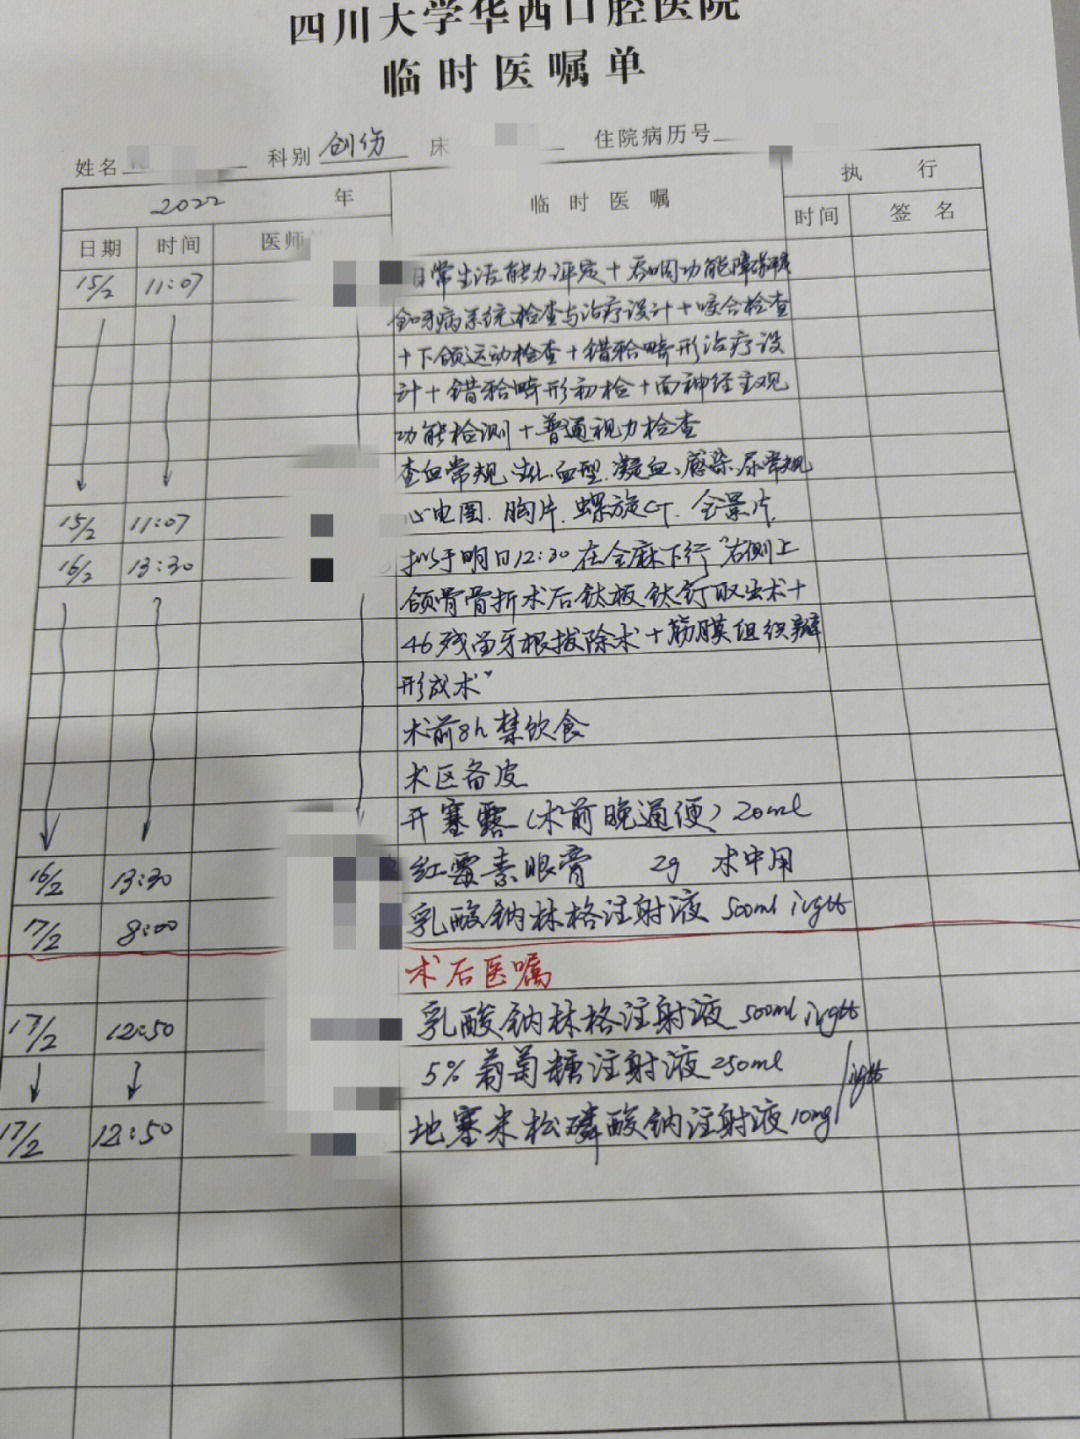 四川大学华西口腔医院
临时医嘱单
姓名 科别 创伤 床 住院病历号
2022 年 临时医嘱 执行
日期 时间 医师 时间 签名
15/2 11:07 日常生活能力评定+吞咽功能障碍
牙病系统检查与治疗设计+咬合检查
+下颌运动检查+错𬌗畸形治疗设
计+错𬌗畸形初检+面神经主观
功能检测+普通视力检查
查血常规、生化、血型、凝血、感染、尿常规
15/2 11:07 心电图、胸片、螺旋CT、全景片
16/2 13:30 拟于明日12:30在全麻下行"右侧上
颌骨骨折术后钛板钛钉取出术+
46残留牙根拔除术+筋膜组织瓣
形成术"
术前8h禁饮食
术区备皮
开塞露(术前晚通便)20ml
16/2 13:30 红霉素眼膏 2g 术中用
17/2 8:00 乳酸钠林格注射液 500ml ivgtt
术后医嘱
17/2 12:50 乳酸钠林格注射液 500ml ivgtt
5%葡萄糖注射液250ml
17/2 12:50 地塞米松磷酸钠注射液10mg / ivgtt